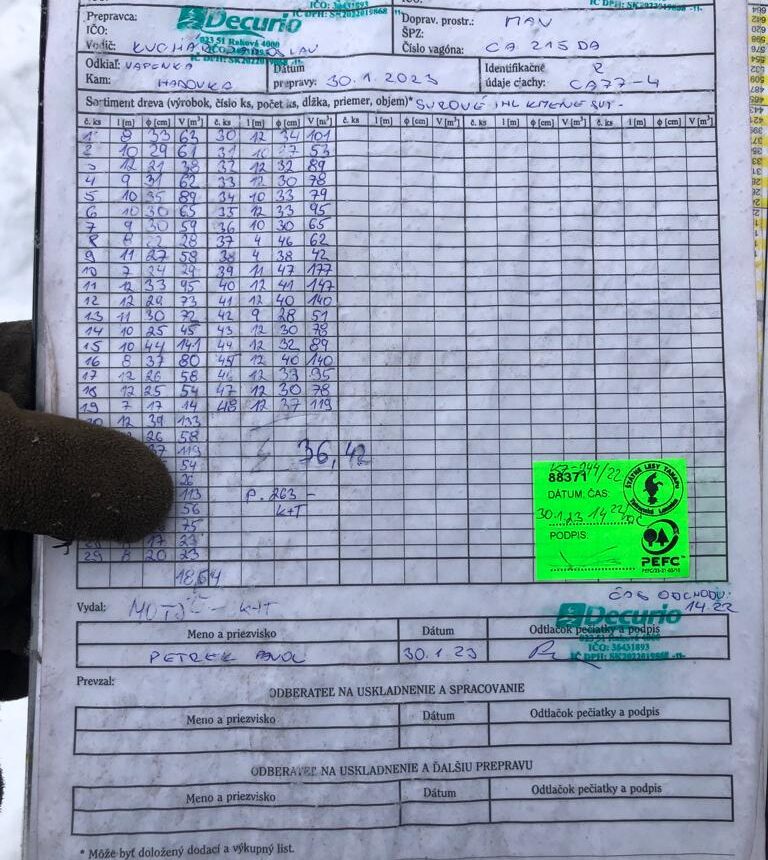 IČO: 36431893
IČ DPH: SK2022019868 -11-
Prepravca: Decurio
IČO: 023 51 Raková 4000
Vodič: IČ DPH: SK2022019868
Doprav. prostr.: MAN
ŠPZ:
Číslo vagóna: CA 215 DA
Odkiaľ: VAPENKA
Kam:
Dátum
prepravy: 30.1.2023
Identifikačné 2
údaje dľachy: CA77-4
Sortiment dreva (výrobok, číslo ks, počet ks, dĺžka, priemer, objem)* SUROVÉ IHL KMENE
č. ks l [m] ϕ [cm] V [m³] č. ks l [m] ϕ [cm] V [m³] č. ks l [m] ϕ [cm] V [m³] č. ks l [m] ϕ [cm] V [m³] č. ks l [m] ϕ [cm] V [m³]
1 8 33 63 30 12 34 101
2 10 29 61 31 10 27 53
3 12 21 38 32 12 32 89
4 9 31 62 33 12 30 78
5 10 35 89 34 10 33 79
6 10 30 65 35 12 33 95
7 9 30 59 36 10 30 65
8 8 22 28 37 4 46 62
9 11 27 58 38 4 38 42
10 7 24 29 39 11 47 177
11 12 33 95 40 12 41 147
12 12 29 73 41 12 40 140
13 11 30 72 42 9 28 51
14 10 25 45 43 12 30 78
15 10 44 141 44 12 32 89
16 8 37 80 45 12 40 140
17 12 26 58 46 12 33 95
18 12 25 54 47 12 30 78
19 7 17 14 48 12 37 119
12 39 133
26 58
37 119
36,42
54
26
113 P. 263 -
56 K+T
75
17 23
29 8 20 23
18,64
88371
244/22
DÁTUM, ČAS:
30.1.23 14 22
PODPIS:
ŠTÁTNE LESY TANAPu
Tatranská Lomnica
PEFC
ČAS ODCHODU:
14.22
Vydal: K+T
Decurio
Meno a priezvisko Dátum Odtlačok pečiatky a podpis
023 51 Raková 4000
IČO: 36431893
PETREK PAVOL 30.1.23
IČ DPH: SK2022019868 -11-
Prevzal:
ODBERATEĽ NA USKLADNENIE A SPRACOVANIE
Meno a priezvisko Dátum Odtlačok pečiatky a podpis
ODBERATEĽ NA USKLADNENIE A ĎALŠIU PREPRAVU
Meno a priezvisko Dátum Odtlačok pečiatky a podpis
* Môže byť doložený dodací a výkupný list.